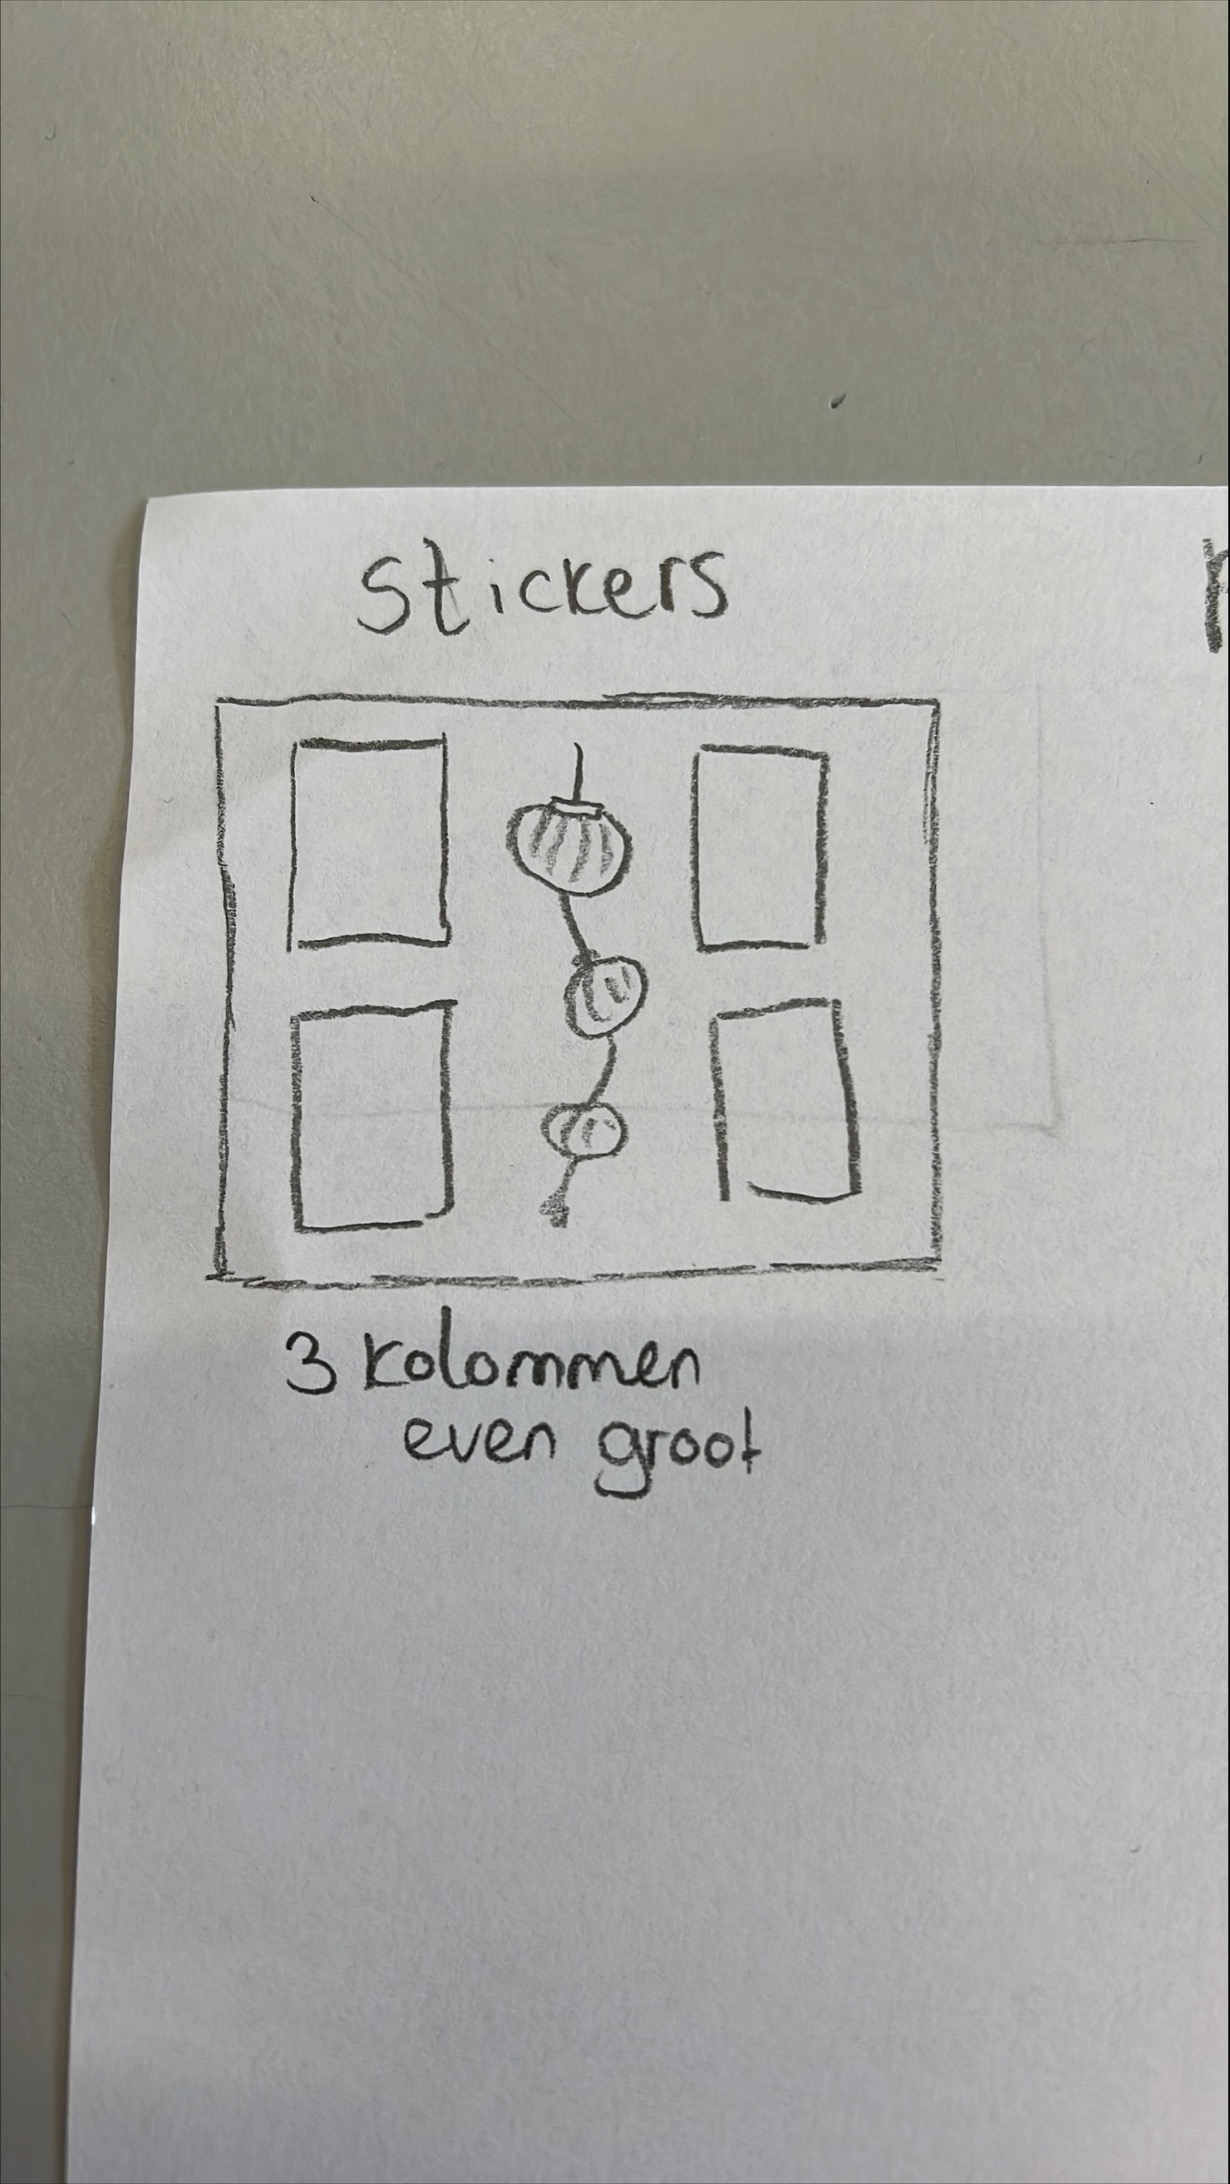 stickers
3 kolommen
even groot